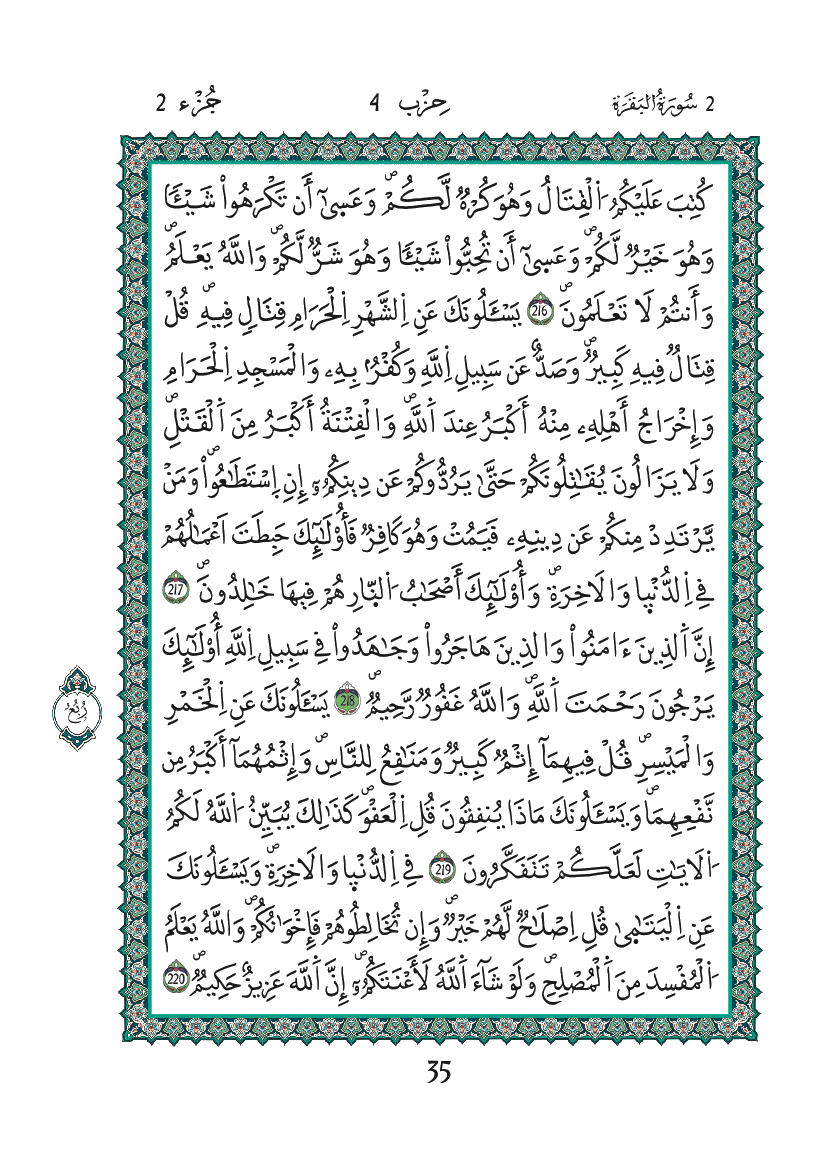 2 سُورَةُ الْبَقَرَة
حِزْب 4
جُزْء 2
كُتِبَ عَلَيْكُمُ اَ۬لْقِتَالُ وَهُوَ كُرْهٞ لَّكُمْۖ وَعَس۪ىٰٓ أَن تَكْرَهُواْ شَيْـٔاٗ
وَهُوَ خَيْرٞ لَّكُمْۖ وَعَس۪ىٰٓ أَن تُحِبُّواْ شَيْـٔاٗ وَهُوَ شَرّٞ لَّكُمْۖ وَاللَّهُ يَعْلَمُۖ
وَأَنتُمْ لَا تَعْلَمُونَۖ 216 يَسْـَٔلُونَكَ عَنِ اِ۬لشَّهْرِ اِ۬لْحَرَامِ قِتَالٖ فِيهِۖ قُلْ
قِتَالٞ فِيهِ كَبِيرٞۖ وَصَدٌّ عَن سَبِيلِ اِ۬للَّهِ وَكُفْرُۢ بِهِۦ وَالْمَسْجِدِ اِ۬لْحَرَامِ
وَإِخْرَاجُ أَهْلِهِۦ مِنْهُ أَكْبَرُ عِندَ اَ۬للَّهِۖ وَالْفِتْنَةُ أَكْبَرُ مِنَ اَ۬لْقَتْلِۖ
وَلَا يَزَالُونَ يُقَٰتِلُونَكُمْ حَتَّىٰ يَرُدُّوكُمْ عَن دِينِكُمُۥٓ إِنِ اِ۪سْتَطَٰعُواْۖ وَمَنْ
يَّرْتَدِدْ مِنكُمْ عَن دِينِهِۦ فَيَمُتْ وَهُوَ كَافِرٞ فَأُوْلَٰٓئِكَ حَبِطَتَ اَعْمَٰلُهُمْ
فِے اِ۬لدُّنْي۪ا وَالَاخِرَةِۖ وَأُوْلَٰٓئِكَ أَصْحَٰبُ اُ۬لنّ۪ارِ هُمْ فِيهَا خَٰلِدُونَۖ 217
إِنَّ اَ۬لذِينَ ءَامَنُواْ وَالذِينَ هَاجَرُواْ وَجَٰهَدُواْ فِے سَبِيلِ اِ۬للَّهِ أُوْلَٰٓئِكَ
يَرْجُونَ رَحْمَتَ اَ۬للَّهِۖ وَاللَّهُ غَفُورٞ رَّحِيمٞۖ 218 يَسْـَٔلُونَكَ عَنِ اِ۬لْخَمْرِ
وَالْمَيْسِرِۖ قُلْ فِيهِمَآ إِثْمٞ كَبِيرٞ وَمَنَٰفِعُ لِلنَّاسِۖ وَإِثْمُهُمَآ أَكْبَرُ مِن
نَّفْعِهِمَاۖ وَيَسْـَٔلُونَكَ مَاذَا يُنفِقُونَ قُلِ اِ۬لْعَفْوَۖ كَذَٰلِكَ يُبَيِّنُ اُ۬للَّهُ لَكُمُ
اُ۬لَايَٰتِ لَعَلَّكُمْ تَتَفَكَّرُونَ 219 فِے اِ۬لدُّنْي۪ا وَالَاخِرَةِۖ وَيَسْـَٔلُونَكَ
عَنِ اِ۬لْيَتَٰم۪ىٰ قُلِ اِصْلَٰحٞ لَّهُمْ خَيْرٞۖ وَإِن تُخَالِطُوهُمْ فَإِخْوَٰنُكُمْۖ وَاللَّهُ يَعْلَمُ
اُ۬لْمُفْسِدَ مِنَ اَ۬لْمُصْلِحِۖ وَلَوْ شَآءَ اَ۬للَّهُ لَأَعْنَتَكُمُۥٓ إِنَّ اَ۬للَّهَ عَزِيزٌ حَكِيمٞۖ 220
رُبُع
35